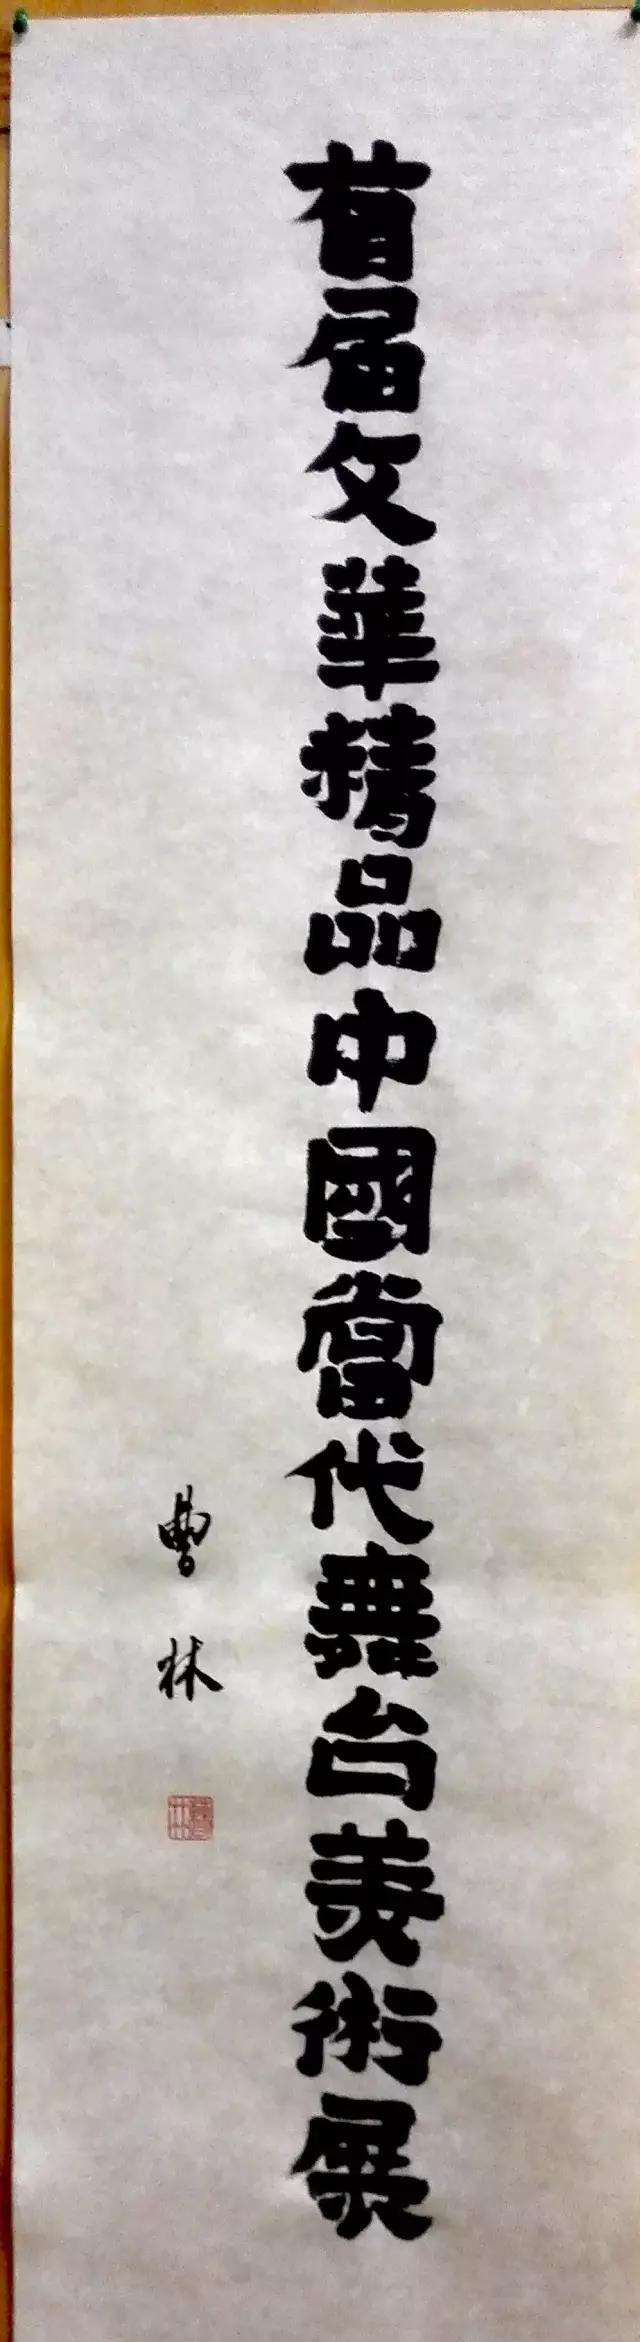 首届文華精品中國當代舞台美術展
曹林